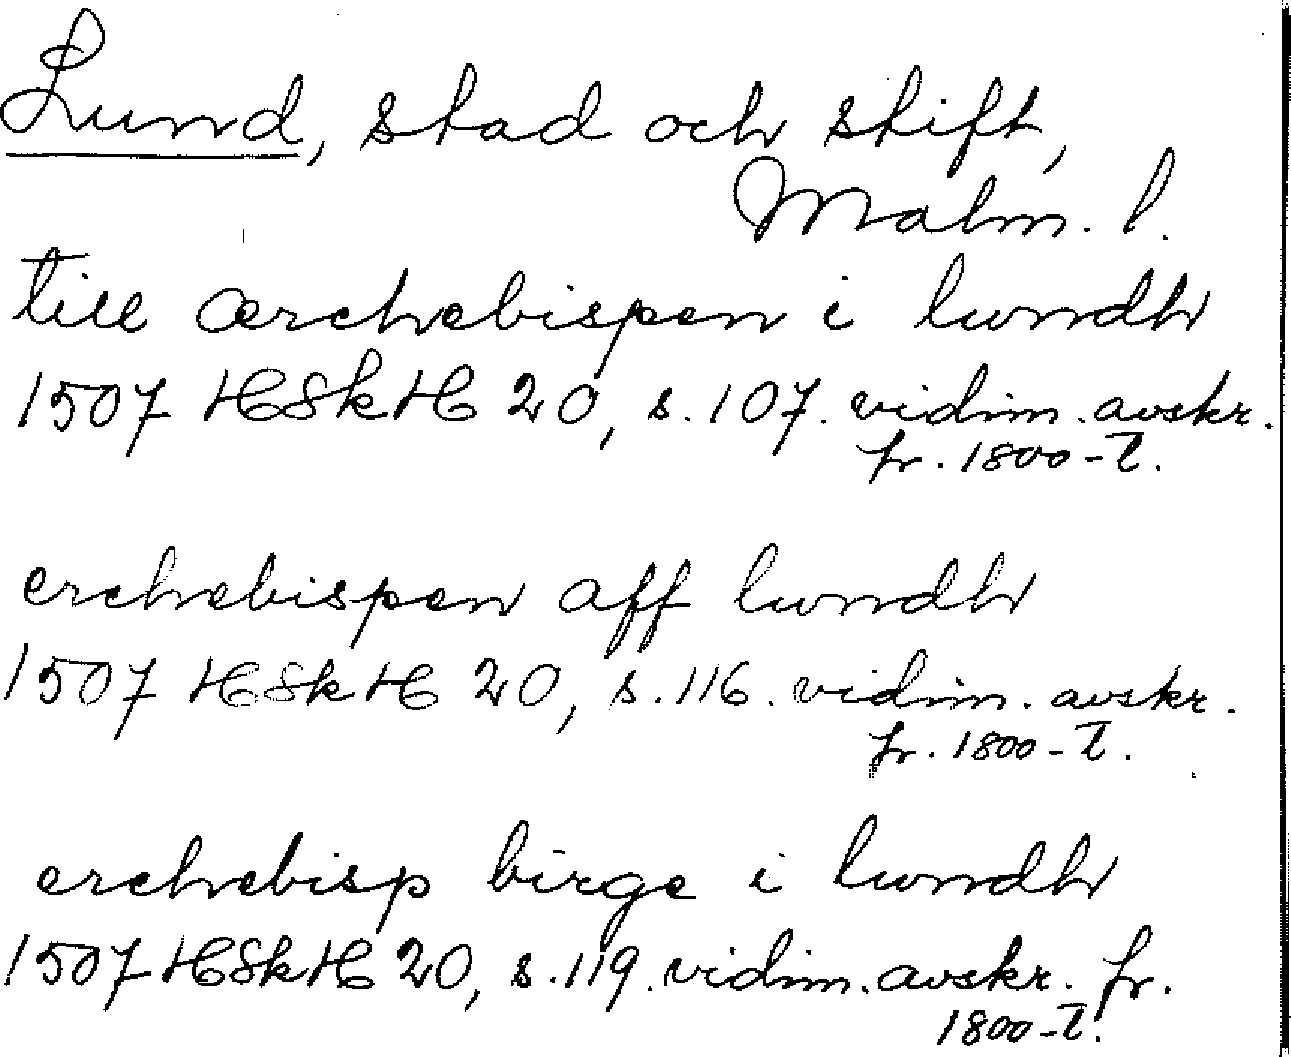 Lund, stad och stift,
Malm. l.
till ærchebispen i lundh
1507 HSkH 20, s. 107. vidim. avskr.
fr. 1800-t.
erchebispen aff lundh
1507 HSkH 20, s. 116. vidim. avskr.
fr. 1800-t.
erchebisp birge i lundh
1507 HSkH 20, s. 119. vidim. avskr. fr.
1800-t.